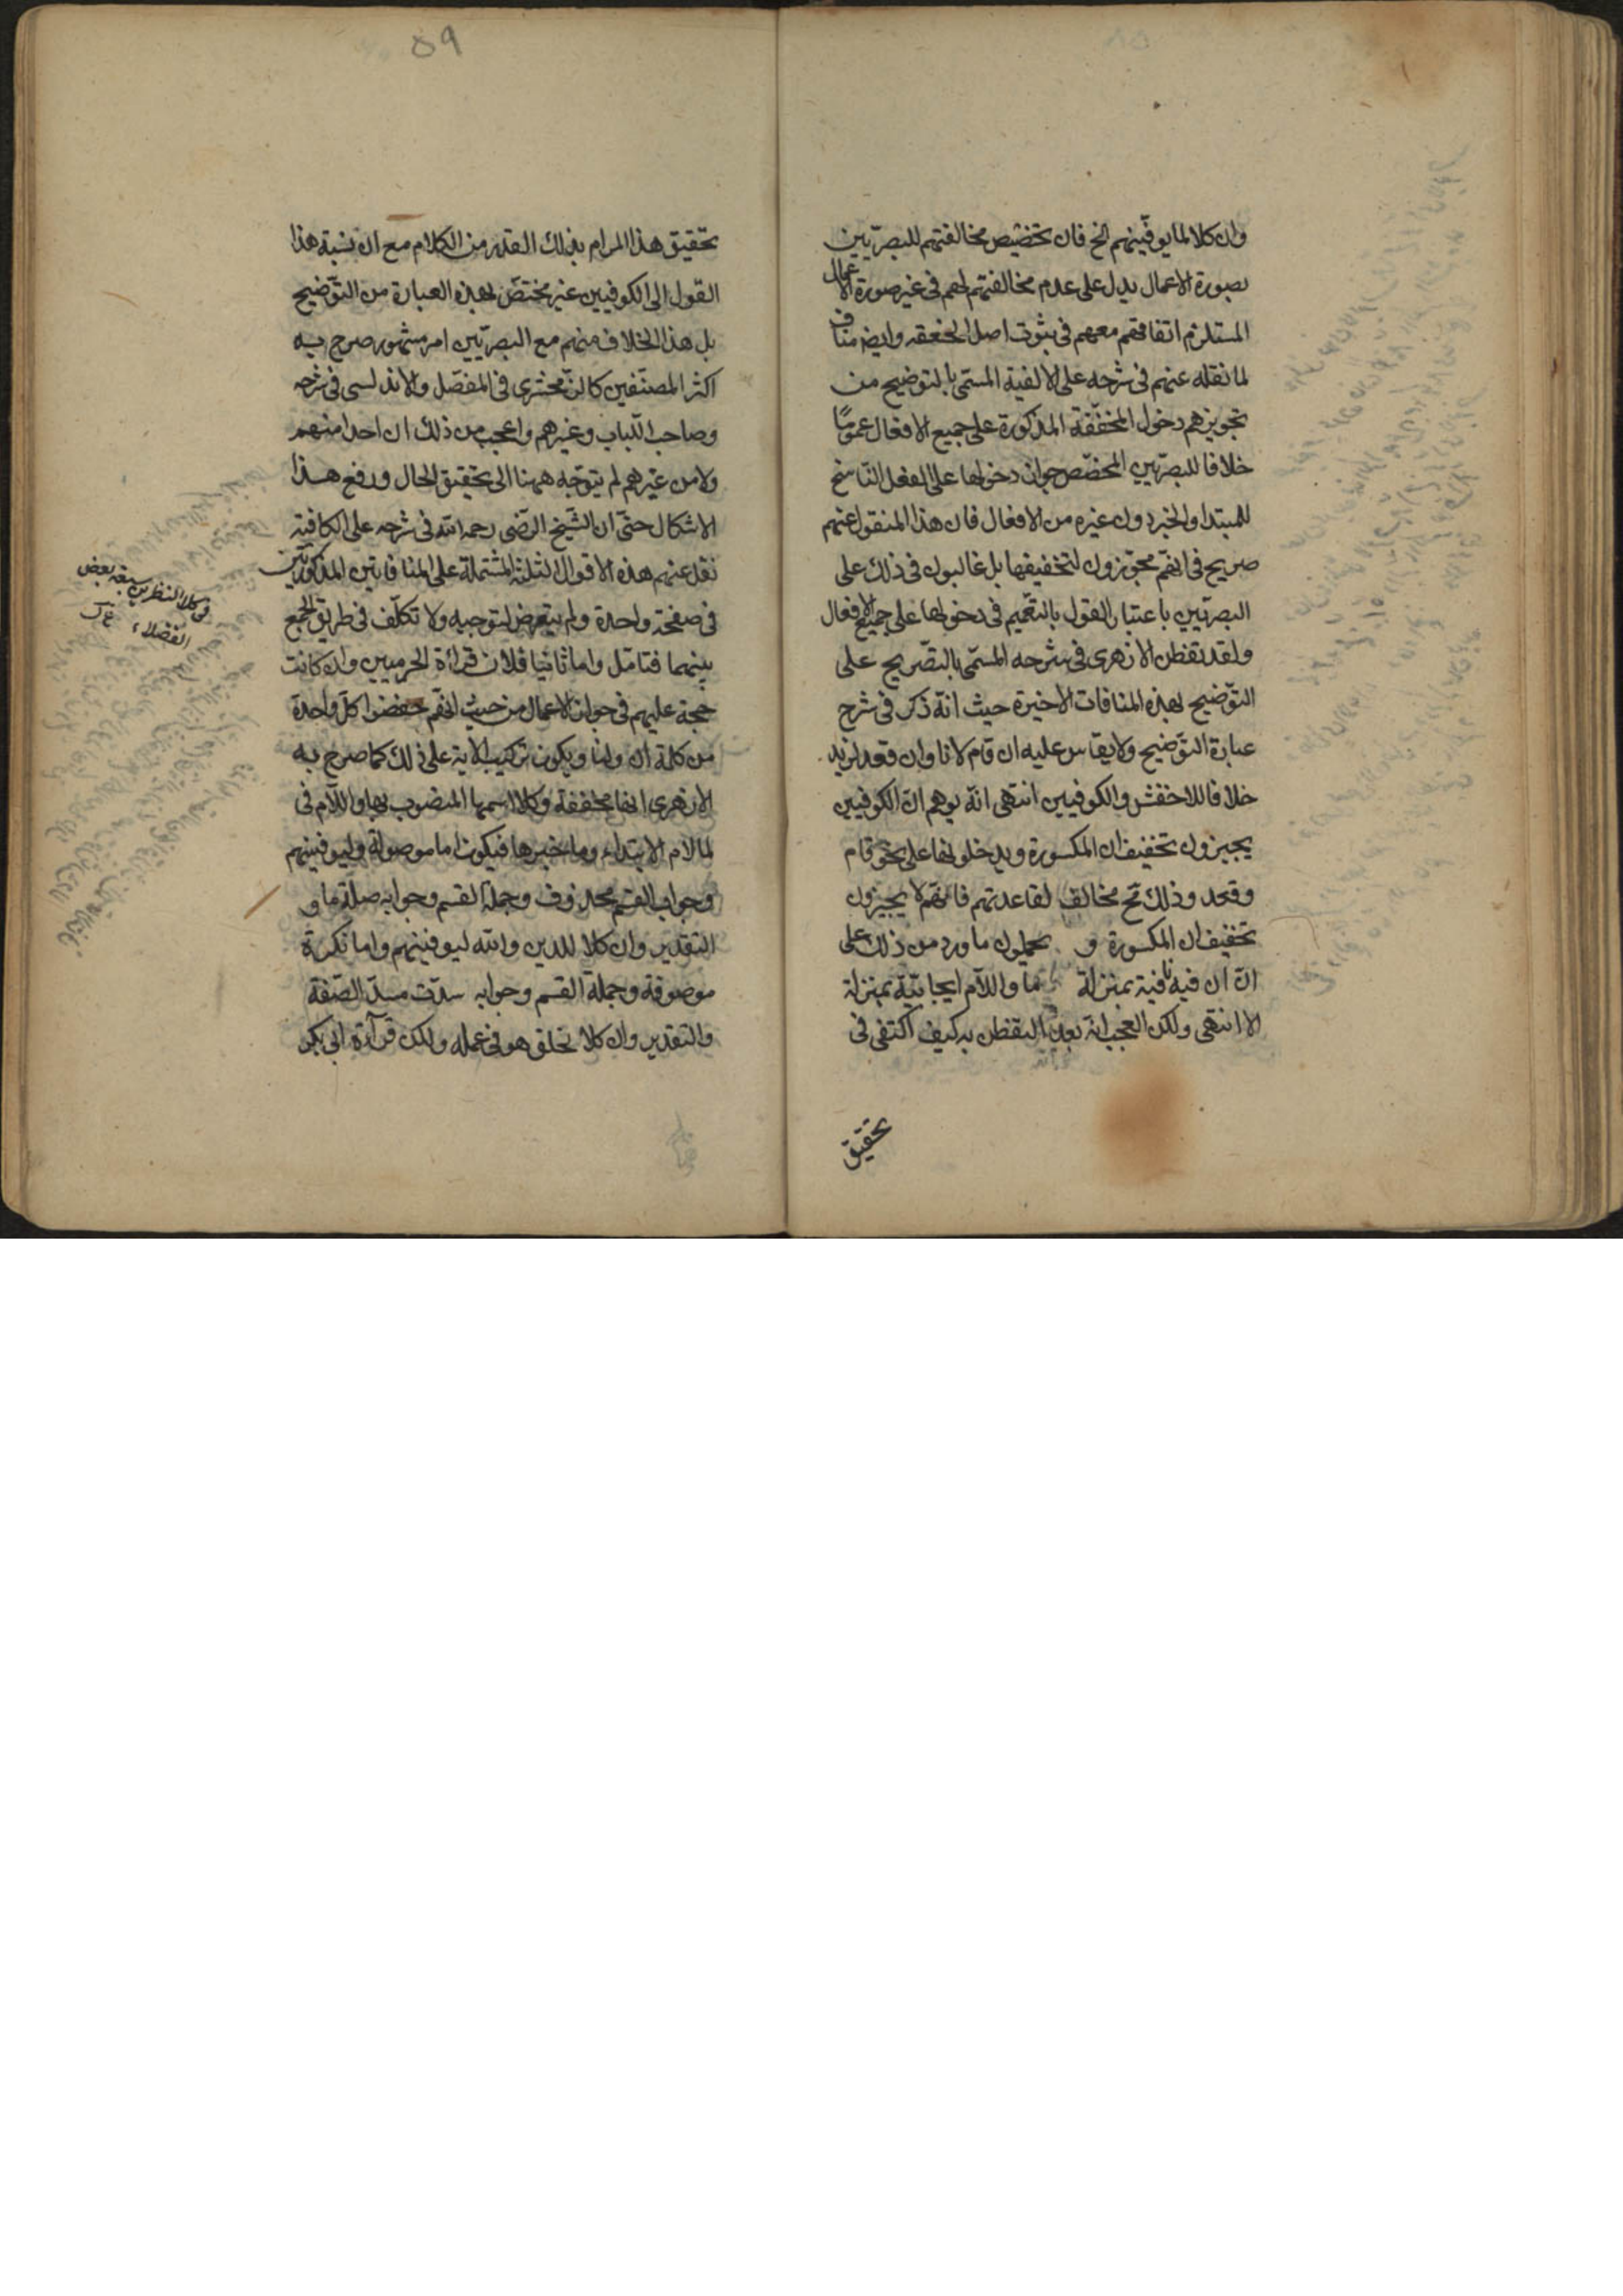 وان كلا لما يوفّينهم الخ فان تخصيص مخالفتهم للبصريّين
بصورة الاعمال يدل على عدم مخالفتهم لهم فى غير صورة الاعمال
المستلزم اتفاقهم معهم فى ثبوت اصل المخففه وايضه مناف
لما نقله عنهم فى شرحه على الالفية المسمّى بالتوضيح من
تجويزهم دخول المخفّفة المذكورة على جميع الافعال عمومًا
خلافا للبصريين المخصّص جواز دخولها على الفعل النّاسخ
للمبتدا والخبر دون غيره من الافعال فان هذا المنقول عنهم
صريح فى انهم مجوّزون لتخفيفها بل غالبون فى ذلك على
البصريّين باعتبار القول بالتعميم فى دخولها على جميع الافعال
ولقد تفطن الازهرى فى شرحه المسمّى بالتصّريح على
التوّضيح بهذه المنافات الاخيرة حيث انّه ذكر فى شرح
عبارة التوّضيح ولا يقاس عليه ان قام لانا وان قعد لزيد
خلافا للاخفش والكوفيين انتهى انّه يوهم انّ الكوفيين
يجيزون تخفيف ان المكسورة ويدخلونها على نحو قام
وقعد وذلك مخالف لقاعدتهم فانهم لا يجيزون
تخفيف ان المكسورة و يحملون ما ورد من ذلك على
انّ ان فيه نافية بمنزلة ما واللّام ايجابيّة بمنزلة
الا انتهى ولكن العجب انّه بعد التفطن به كيف اكتفى فى
تحقيق
٥٩
تحقيق هذا المرام بذلك القدر من الكلام مع ان نسبة هذا
القول الى الكوفيين غير مختصّ بهذه العبارة من التوّضيح
بل هذا الخلاف منهم مع البصريّين امر مشهور صرح به
اكثر المصنّفين كالزّمخشرى فى المفصّل والاندلسى فى شرحه
وصاحب اللّباب وغيرهم واعجب من ذلك ان احدا منهم
ولا من غيرهم لم يتوّجه همنا الى تحقيق الحال ورفع هذا
الاشكال حتّى ان الشّيخ الرّضى رحمه الله فى شرحه على الكافية
نقل عنهم هذه الاقوال الثلثة المشتملة على المنافاتين المذكورتين
فى صفحة واحدة ولم يتعرض لتوجيه ولا تكلّف فى طريق الجمع
بينهما فتامّل واما ثانيا فلان قرائة الحرميين وان كانت
حجة عليهم فى جواز الاعمال من حيث انهم خففوا كل واحدة
من كلمة ان ولما ويكون تركيب الاية على ذلك كما صرح به
الازهرى انها مخففة وكلا اسمها المنصوب بها واللّام فى
لما لام الابتداء وما خبرها فيكون اما موصولة وليوفينهم
وجواب القسم محذوف وجملة القسم وجوابه صلة ما و
التقدير وان كلا للذين والله ليوفينهم واما نكرة
موصوفة وجملة القسم وجوابه سدّت مسدّ الصّفة
والتقدير وان كلا لخلق هو فى عمله ولكن قرآءة ابى بكر
فى كلا النظرين سبقه بعض
الفضلاء